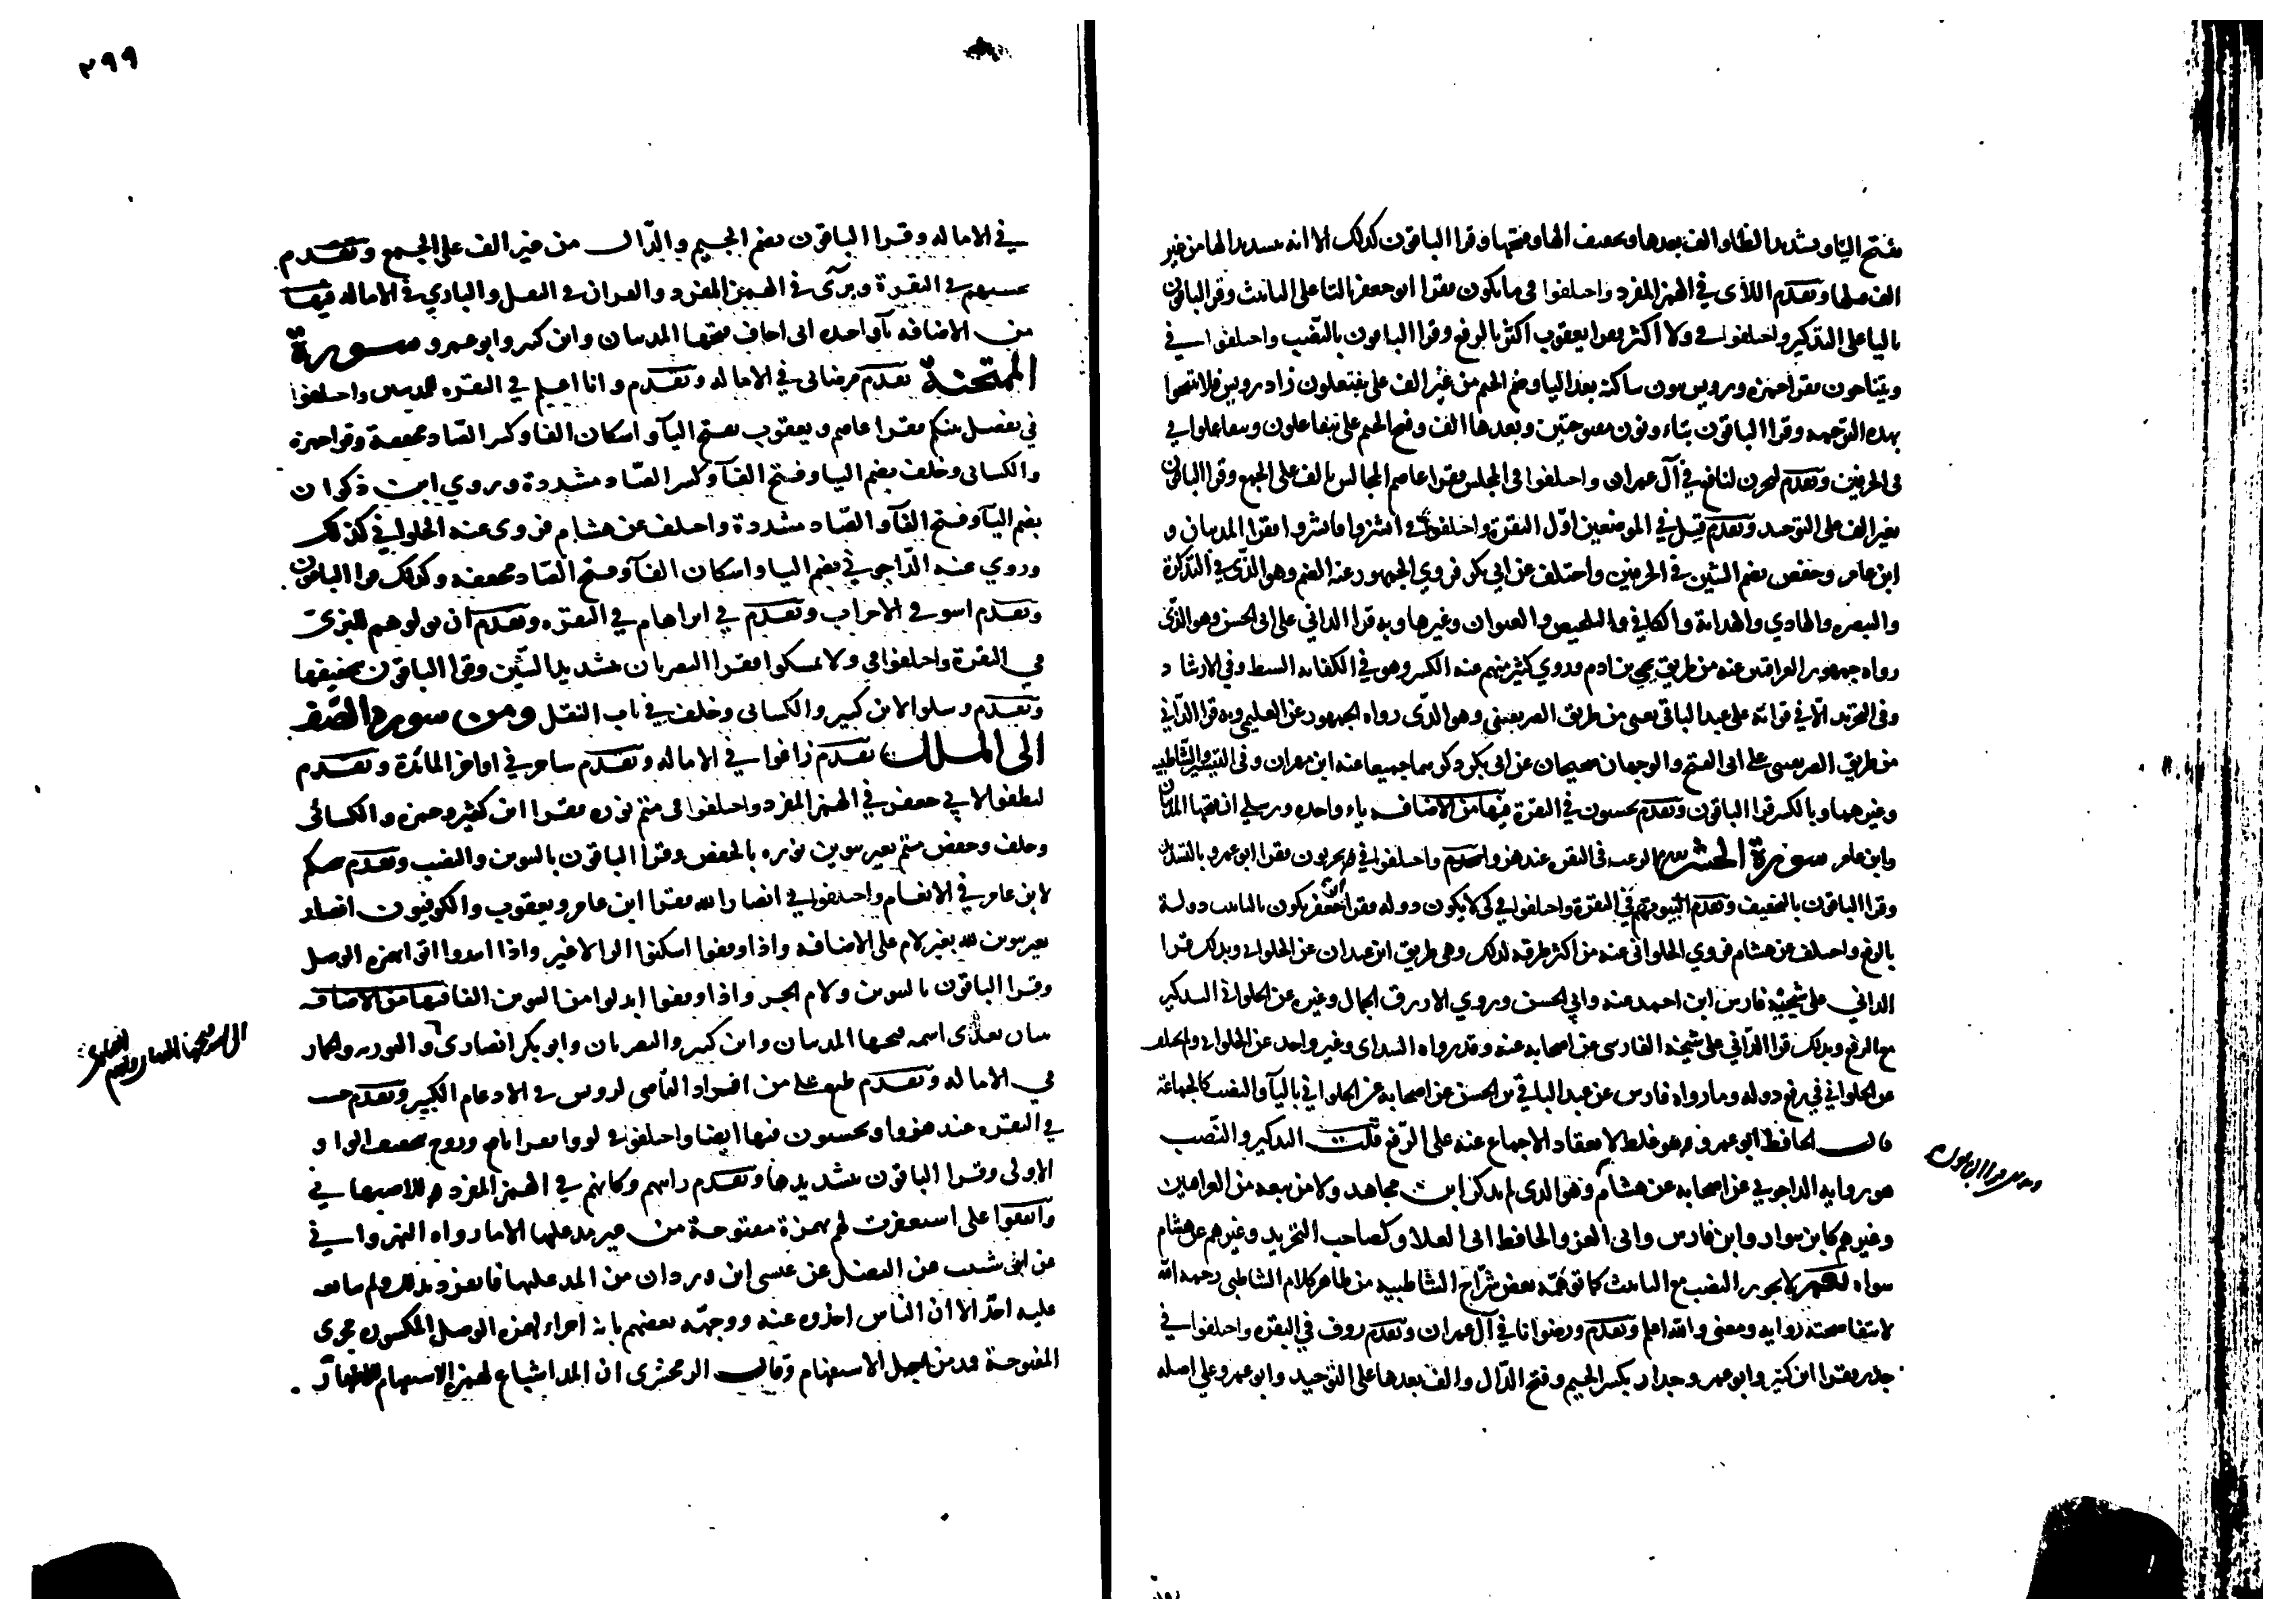 بفتح اليا وتشديد الظا والف بعدها وتخفيف الها وفتحها وقرا الباقون كذلك الا انه بتشديد الها من غير
الف قبلها وتقدم اللائ في الهمز المفرد واختلفوا في ما يكون فقرا ابو جعفر بالتا على التانيث وقرا الباقون
باليا على التذكير واختلفوا في ولا اكثر فقرا يعقوب اكثر بالرفع وقرا الباقون بالنصب واختلفوا في
ويتناجون فقرا حمزة ورويس بنون ساكنة بعد اليا وضم الجيم من غير الف على يفتعلون زاد رويس فلا تنتجوا
بهذه الترجمه وقرا الباقون بتاء ونون مفتوحتين وبعدها الف وفتح الجيم على يتفاعلون وتتفاعلوا في
في الحرفين وتقدم ليحزن لنافع في آل عمران واختلفوا في المجلس فقرا عاصم المجالس بالف على الجمع وقرا الباقون
بغير الف على التوحيد وتقدم قيل في الموضعين اول البقرة واختلفوا في انشزوا فانشزوا فقرا المدنيان و
ابن عامر وحفص بضم الشين في الحرفين واختلف عن ابي بكر فروي الجمهور عنه الضم وهو الذي في التذكرة
والتبصره والهادي والهداية والكافي والتلخيص والعنوان وغيرها وبه قرا الداني على ابي الحسن وهو الذي
رواه جمهور العراقيين عنه من طريق يحيى بن ادم وروي كثير منهم عنه الكسر وهو في الكفايه الست وفي الارشاد
وفي التجريد الا في قراته على عبد الباقي يعني من طريق الصريفيني وهو الذي رواه الجمهور عن العليمي وبه قرا الداني
من طريق الصريفيني على ابي الفتح والوجهان صحيحان عن ابي بكر ذكرهما جميعا عنه ابن مهران وفي التيسير والشاطبيه
وغيرهما وبالكسر قرا الباقون وتقدم يحسبون في البقرة فيها من الاضافه ياء واحده ورسلي ان فتحها المدنيان
وابن عامر سورة الحشر الرعب في البقره عند هزوا واختلفوا في يخربون فقرا ابو عمرو بالتشديد
وقرا الباقون بالتخفيف وتقدم البيوت في البقرة واختلفوا في كي لا يكون دوله فقرا ابو جعفر يكون بالتانيث دولة
بالرفع واختلف عن هشام فروي الحلواني عنه من اكثر طرقه كذلك وهي طريق ابن عبدان عن الحلواني وبذلك قرا
الداني على شيخه فارس ابن احمد عنه وابي الحسن وروي الازرق الجمال وغيره عن الحلواني التذكير
مع الرفع وبذلك قرا الداني على شيخه الفارسي عن اصحابه عنه وقد رواه الشذاي وغير واحد عن الحلواني ولم يختلف
عن الحلواني في رفع دوله وما رواه فارس عن عبد الباقي بن الحسن عن اصحابه عن الحلواني باليا والنصب كالجماعة
قال الحافظ ابو عمرو وهو غلط لانعقاد الاجماع عنه على الرفع قلت التذكير والنصب
هو رواية الداجوني عن اصحابه عن هشام وهو الذي لم يذكر ابن مجاهد ولا من تبعه من العراقيين
وغيرهم كابن سوار وابن فارس وابي العز والحافظ ابي العلا وكصاحب التجريد وغيرهم عن هشام
سواه نعم لا يجوز النصب مع التانيث كما توهمه بعض شراح الشاطبيه من ظاهر كلام الشاطبي رحمه الله
لانتفا صحته روايه ومعنى والله اعلم وتقدم ورضوانا في آل عمران وتقدم روف في البقره واختلفوا في
جدر فقرا ابن كثير وابو عمرو جدار بكسر الجيم وفتح الدال والف بعدها على التوحيد وابو عمرو على اصله
٢٩٩
في الاماله وقرا الباقون بضم الجيم والدال من غير الف على الجمع وتقدم
تحسبهم في البقرة وبرى في الهمز المفرد والقران في النقل والباري في الاماله فيها
من الاضافه يآ واحده اني اخاف فتحها المدنيان وابن كثير وابو عمرو سورة
الممتحنة تقدم مرضاتي في الاماله وتقدم وانا اعلم في البقره للمدنيين واختلفوا
في يفصل بينكم فقرا عاصم ويعقوب بفتح اليآ واسكان الفا وكسر الصاد مخففة وقرا حمزة
والكسائي وخلف بضم اليا وفتح الفآ وكسر الصاد مشددة وروي ابن ذكوان
بضم اليآ وفتح الفآ والصاد مشددة واختلف عن هشام فروى عنه الحلواني كذلك
وروي عنه الداجوني بضم اليا واسكان الفآ وفتح الصاد مخففه وكذلك قرا الباقون
وتقدم اسوه في الاحزاب وتقدم في ابراهام في البقره وتقدم ان تولوهم للبزي
في البقرة واختلفوا في ولا تمسكوا فقرا البصريان بتشديد السين وقرا الباقون بتخفيفها
وتقدم وسلوا لابن كبير والكسائي وخلف في باب النقل ومن سورة الصف
الى الملك تقدم زاغوا في الاماله وتقدم ساحر في اواخر المائدة وتقدم
ليطفوا لابي جعفر في الهمز المفرد واختلفوا في متم نوره فقرا ابن كثير وحمزه والكسائى
وخلف وحفص متم بغير تنوين نوره بالخفض وقرا الباقون بالتنوين والنصب وتقدم تنجيكم
لابن عامر في الانعام واختلفوا في انصارا لله فقرا ابن عامر ويعقوب والكوفيون انصار
بغير تنوين لله بغير لام على الاضافه واذا وقفوا اسكنوا الرا لا غير واذا ابتدوا اتوا بهمزه الوصل
وقرا الباقون بالتنوين ولام الجر واذا وقفوا ابدلوا من التنوين الفا فيها من الاضافه
يآان بعدي اسمه فتحها المدنيان وابن كثير والبصريان وابو بكر انصاري والتوريه والحمار
في الاماله وتقدم طبع على من افراد القاضي لرويس في الادغام الكبير وتقدم خشب
في البقره عند هزوا ويحسبون فيها ايضا واختلفوا في لووا فقرا نافع وروح بتخفيف الواو
الاولى وقرا الباقون بتشديدها وتقدم رايتهم وكانهم في الهمز المفرد للاصبهاني
واتفقوا على استغفرت لهم بهمزة مفتوحة من غير مد عليها الا ما رواه النهرواني
عن ابن شبيب عن الفضل عن عيسى ابن وردان من المد عليها فانفرد بذلك ولم يتابعه
عليه احد الا ان الناس اخذوه عنه ووجهه بعضهم بانه اجراء لهمزه الوصل المكسوره مجرى
المفتوحة فمد من اجل الاستفهام وقال الزمخشري ان المد اشباع لهمزه الاستفهام للاظهار